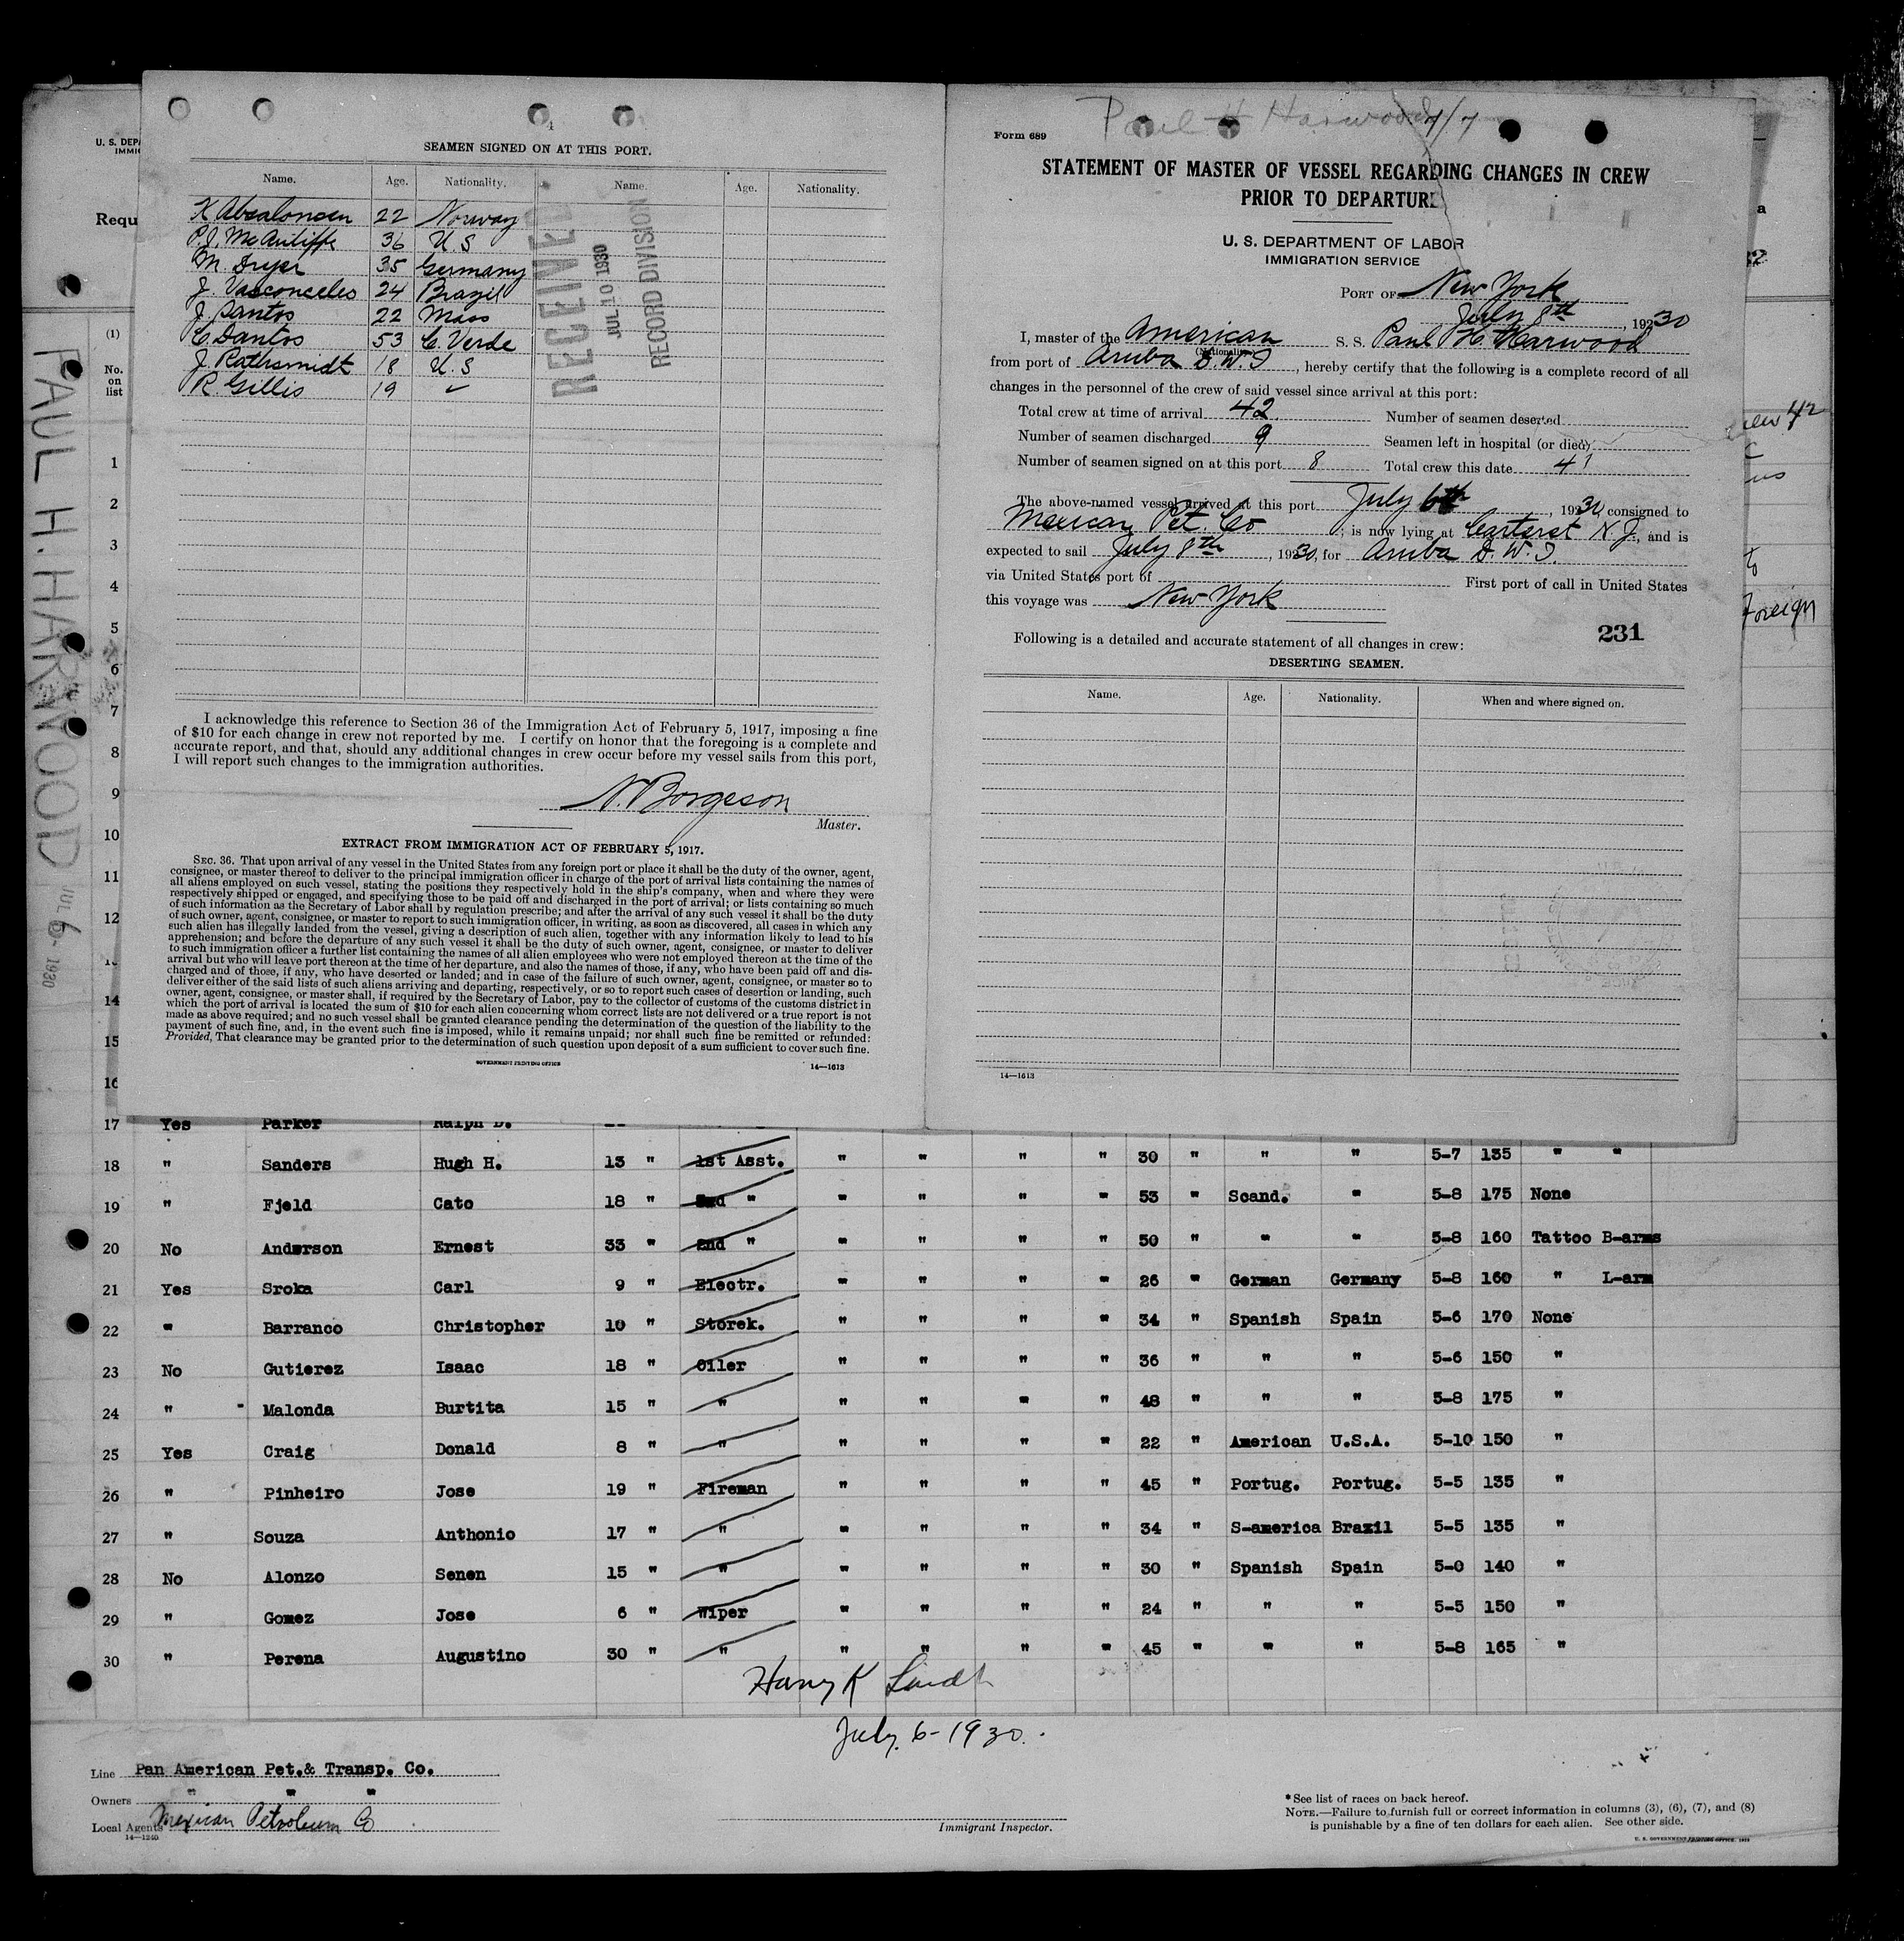 4
SEAMEN SIGNED ON AT THIS PORT.
Name. Age. Nationality. Name. Age. Nationality.
K Absalonsen 22 Norway
P. J. McAuliffe 36 U.S
M. Dryer 35 Germany
J. Vasconceles 24 Brazil
J. Santos 22 Mass
C. Dantos 53 C. Verde
J. Rathsmidt 18 U.S
R. Gillis 19 ✓
RECEIVED
JUL 10 1930
RECORD DIVISION
I acknowledge this reference to Section 36 of the Immigration Act of February 5, 1917, imposing a fine
of $10 for each change in crew not reported by me. I certify on honor that the foregoing is a complete and
accurate report, and that, should any additional changes in crew occur before my vessel sails from this port,
I will report such changes to the immigration authorities.
N. Borgeson
Master.
EXTRACT FROM IMMIGRATION ACT OF FEBRUARY 5, 1917.
SEC. 36. That upon arrival of any vessel in the United States from any foreign port or place it shall be the duty of the owner, agent,
consignee, or master thereof to deliver to the principal immigration officer in charge of the port of arrival lists containing the names of
all aliens employed on such vessel, stating the positions they respectively hold in the ship's company, when and where they were
respectively shipped or engaged, and specifying those to be paid off and discharged in the port of arrival; or lists containing so much
of such information as the Secretary of Labor shall by regulation prescribe; and after the arrival of any such vessel it shall be the duty
of such owner, agent, consignee, or master to report to such immigration officer, in writing, as soon as discovered, all cases in which any
such alien has illegally landed from the vessel, giving a description of such alien, together with any information likely to lead to his
apprehension; and before the departure of any such vessel it shall be the duty of such owner, agent, consignee, or master to deliver
to such immigration officer a further list containing the names of all alien employees who were not employed thereon at the time of the
arrival but who will leave port thereon at the time of her departure, and also the names of those, if any, who have been paid off and dis-
charged and of those, if any, who have deserted or landed; and in case of the failure of such owner, agent, consignee, or master so to
deliver either of the said lists of such aliens arriving and departing, respectively, or so to report such cases of desertion or landing, such
owner, agent, consignee, or master shall, if required by the Secretary of Labor, pay to the collector of customs of the customs district in
which the port of arrival is located the sum of $10 for each alien concerning whom correct lists are not delivered or a true report is not
made as above required; and no such vessel shall be granted clearance pending the determination of the question of the liability to the
payment of such fine, and, in the event such fine is imposed, while it remains unpaid; nor shall such fine be remitted or refunded:
Provided, That clearance may be granted prior to the determination of such question upon deposit of a sum sufficient to cover such fine.
GOVERNMENT PRINTING OFFICE 14—1613
Paul H Harwood 7/7
Form 689
STATEMENT OF MASTER OF VESSEL REGARDING CHANGES IN CREW
PRIOR TO DEPARTURE
U. S. DEPARTMENT OF LABOR
IMMIGRATION SERVICE
PORT OF New York
July 8th, 1930
I, master of the American S. S. Paul H Harwood
(Nationality)
from port of Aruba D.W.I, hereby certify that the following is a complete record of all
changes in the personnel of the crew of said vessel since arrival at this port:
Total crew at time of arrival 42 Number of seamen deserted
Number of seamen discharged 9 Seamen left in hospital (or died)
Number of seamen signed on at this port 8 Total crew this date 41
The above-named vessel arrived at this port July 6th, 1930, consigned to
Mexican Pet. Co; is now lying at Carteret N.J., and is
expected to sail July 8th, 1930, for Aruba D.W.I.
via United States port of First port of call in United States
this voyage was New York
231
Following is a detailed and accurate statement of all changes in crew:
DESERTING SEAMEN.
Name. Age. Nationality. When and where signed on.
14—1613
U. S. DEPA
IMMIG
Requ
(1)
No. on list
PAUL H. HARWOOD
JUL 6 - 1930
crew 42
Foreign
1
2
3
4
5
6
7
8
9
10
11
12
14
15
16
17 Yes Parker Ralph D.
18 " Sanders Hugh H. 13 " 1st Asst. " " " " 30 " " " 5-7 135 " "
19 " Fjeld Cato 18 " " " " " " 53 " Scand. " 5-8 175 None
20 No Anderson Ernest 33 " 2nd " " " " " 50 " " " 5-8 160 Tattoo B-arms
21 Yes Sroka Carl 9 " Electr. " " " " 26 " German Germany 5-8 160 " L-arm
22 " Barranco Christopher 10 " Storek. " " " " 34 " Spanish Spain 5-6 170 None
23 No Gutierez Isaac 18 " Oiler " " " " 36 " " " 5-6 150 "
24 " Malonda Burtita 15 " " " " " " 48 " " " 5-8 175 "
25 Yes Craig Donald 8 " " " " " " 22 " American U.S.A. 5-10 150 "
26 " Pinheiro Jose 19 " Fireman " " " " 45 " Portug. Portug. 5-5 135 "
27 " Souza Anthonio 17 " " " " " " 34 " S-america Brazil 5-5 135 "
28 No Alonzo Senen 15 " " " " " " 30 " Spanish Spain 5-0 140 "
29 " Gomez Jose 6 " Wiper " " " " 24 " " " 5-5 150 "
30 " Perena Augustino 30 " " " " " " 45 " " " 5-8 165 "
Harry K Landt
July 6-1930.
Line Pan American Pet.& Transp. Co.
Owners " " "
Local Agents Mexican Petroleum Co
14—1240
Immigrant Inspector.
* See list of races on back hereof.
NOTE.—Failure to furnish full or correct information in columns (3), (6), (7), and (8)
is punishable by a fine of ten dollars for each alien. See other side.
U. S. GOVERNMENT PRINTING OFFICE